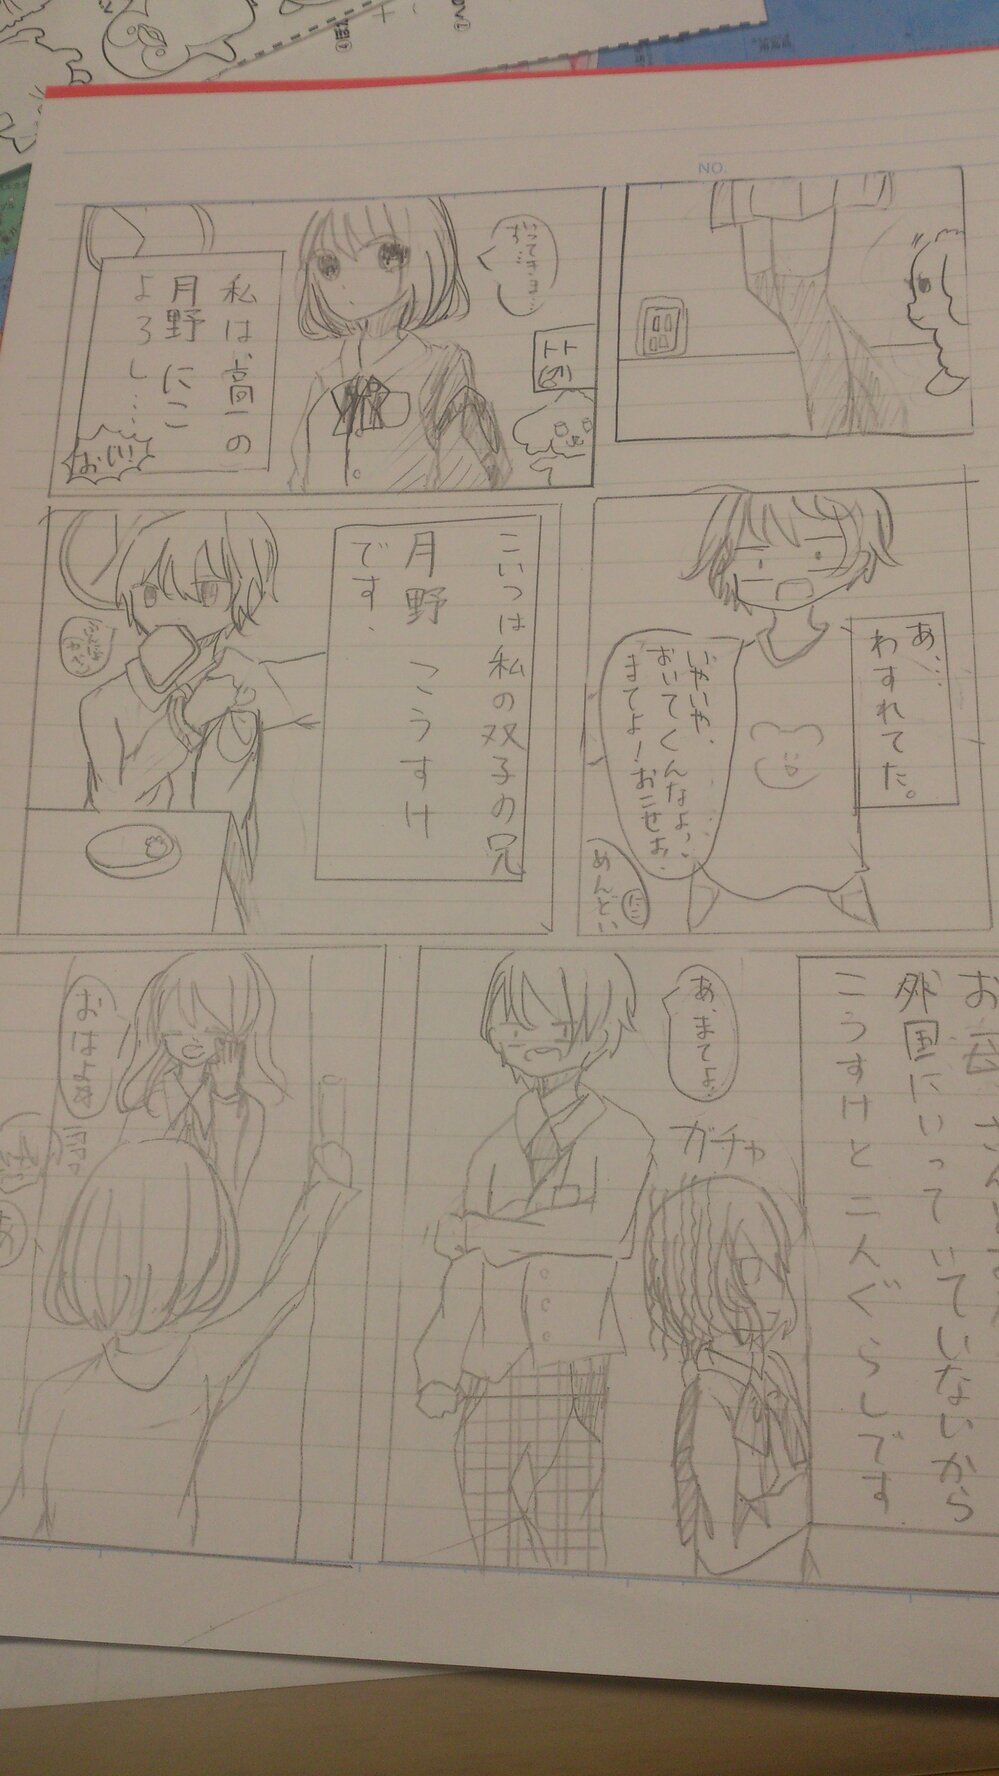 NO.
いってきま…
お…
私は高一の
月野 にこ
よろし…
おい!!
あ…
わすれてた。
いやいや、
おいてくんなよっ、
まてよー!おこせよ、
めんどい
にこ
こいつは私の双子の兄
月野 こうすけ
です.
外国にいっていていないから
こうすけと二人ぐらしです
あ、まてよ
ガチャ
おはよ